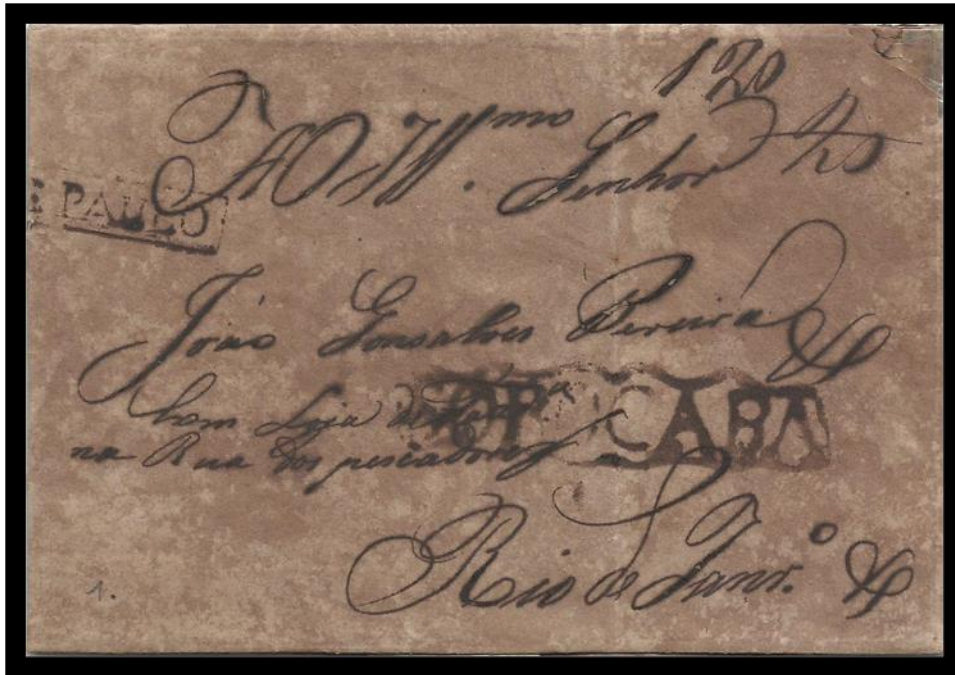 120
AO Ill.mo Senhor
PAULO
João Gonsalves Pereira
Com Loja de
na Rua dos pescadores
CABA
Rio de Janr.o
1.